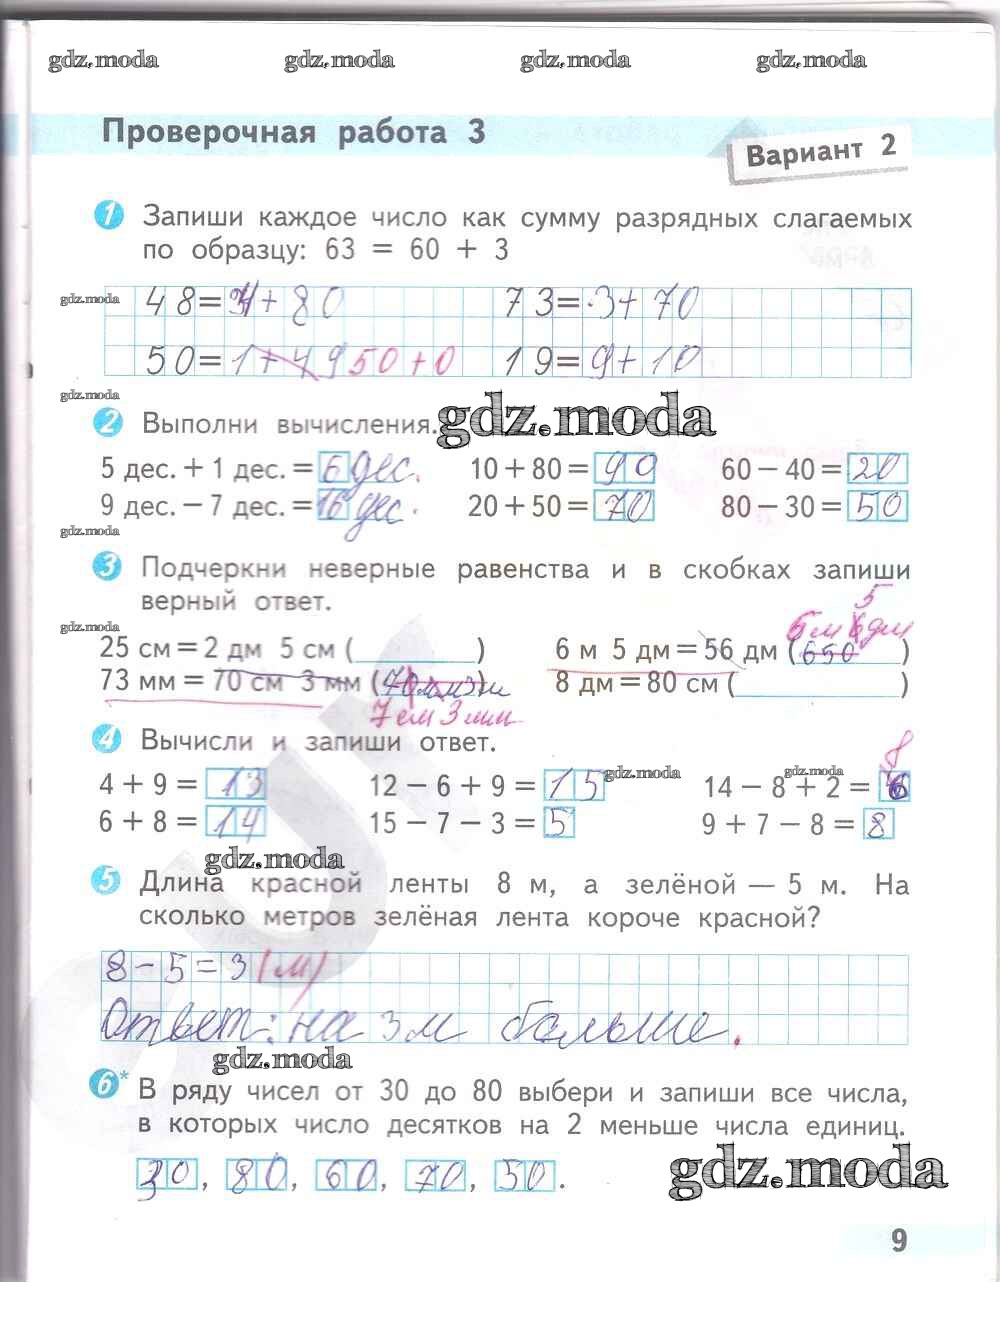 gdz.moda gdz.moda gdz.moda gdz.moda
Проверочная работа 3
Вариант 2
1 Запиши каждое число как сумму разрядных слагаемых
по образцу: 63 = 60 + 3
gdz.moda
48= + 80 73=3+70
50=1+49 50+0 19=9+10
gdz.moda
2 Выполни вычисления. gdz.moda
5 дес. + 1 дес. = 6 дес. 10 + 80 = 90 60 − 40 = 20
9 дес. − 7 дес. = 16 дес. 20 + 50 = 70 80 − 30 = 50
gdz.moda
3 Подчеркни неверные равенства и в скобках запиши
верный ответ.
5
gdz.moda 6м 6дм
25 см = 2 дм 5 см ( ) 6 м 5 дм = 56 дм (650)
73 мм = 70 см 3 мм ( ) 8 дм = 80 см ( )
7 см 3 мм
4 Вычисли и запиши ответ.
8
gdz.moda gdz.moda
4 + 9 = 13 12 − 6 + 9 = 15 14 − 8 + 2 = 6
6 + 8 = 14 15 − 7 − 3 = 5 9 + 7 − 8 = 8
gdz.moda
5 Длина красной ленты 8 м, а зелёной — 5 м. На
сколько метров зелёная лента короче красной?
8 − 5 = 3 (м)
Ответ: на 3 м больше.
gdz.moda
6* В ряду чисел от 30 до 80 выбери и запиши все числа,
в которых число десятков на 2 меньше числа единиц.
gdz.moda
30, 80, 60, 70, 50.
9